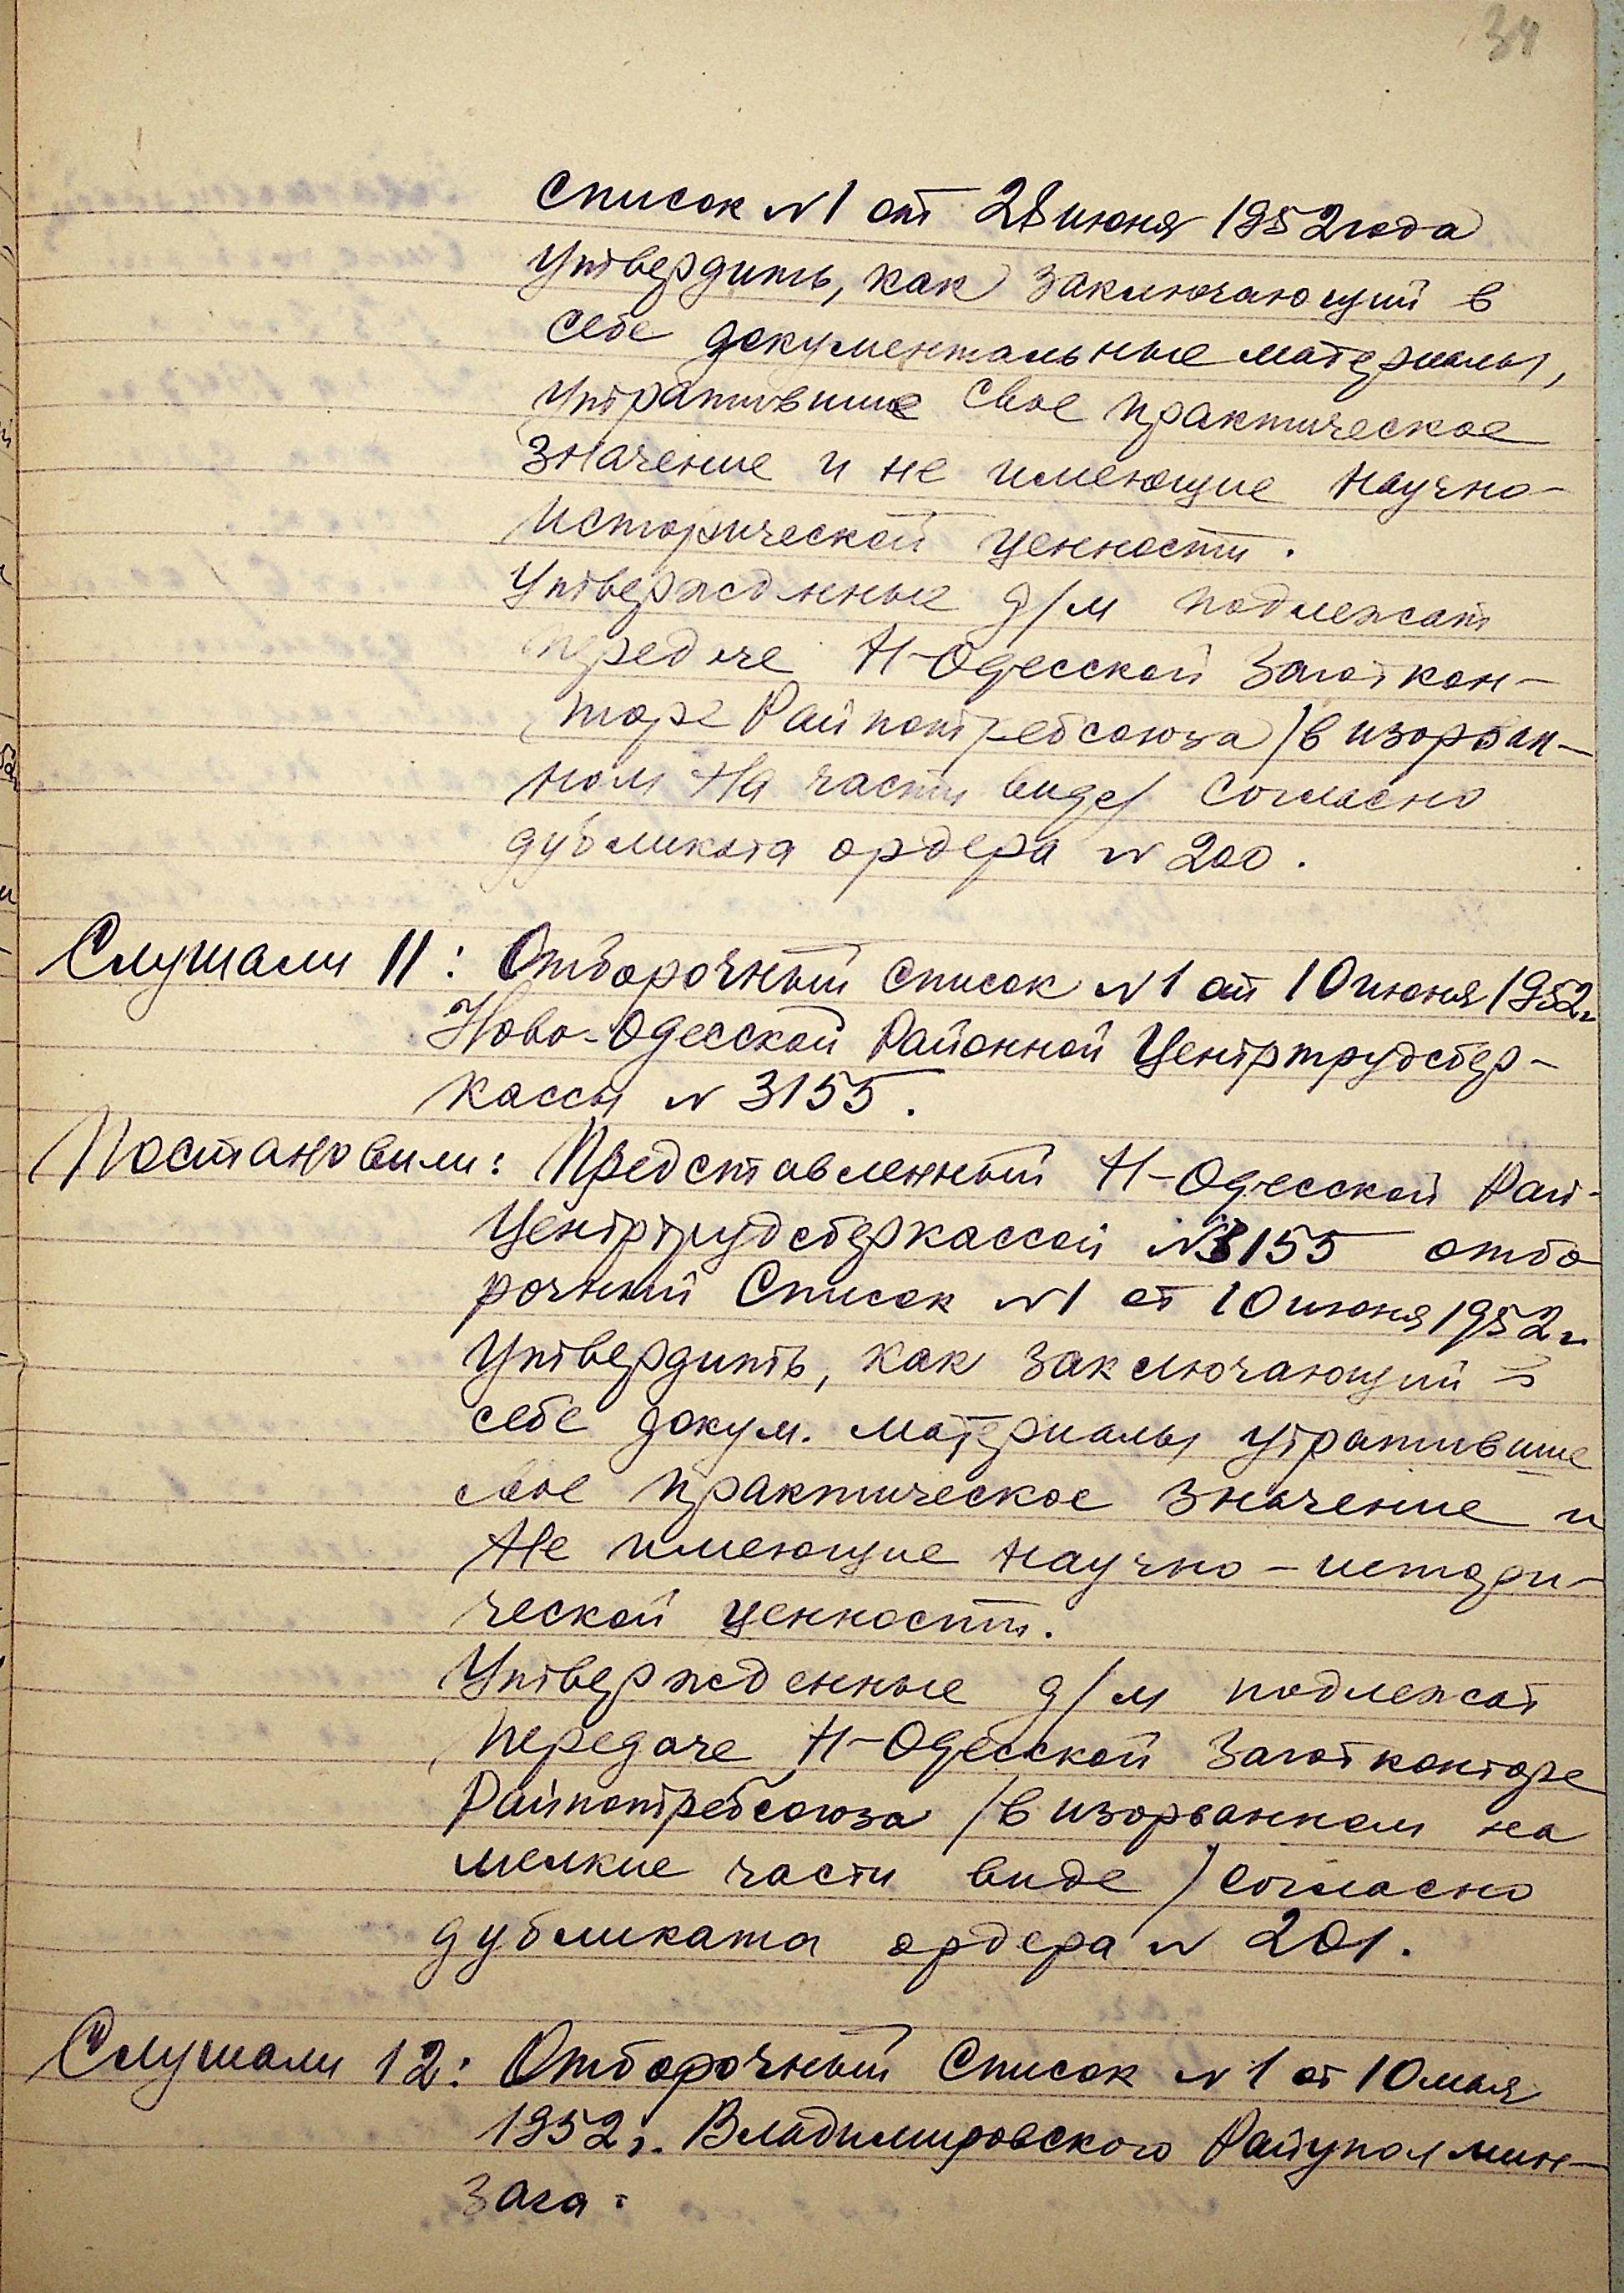 34
список №1 от 28 июня 1952 года
утвердить, как заключающий в
себе документальные материалы,
утратившие свое практическое
значение и не имеющие научно-
исторической ценности.
Утвержденные д/м подлежат
передаче Н-Одесской Заготкон-
торе Райпотребсоюза /в изорван-
ном на части виде/ согласно
дубликата ордера № 200.
Слушали 11: Отборочный список №1 от 10 июня 1952г.
Ново-Одесской Районной Центртрудсбер-
кассы № 3155.
Постановили: Представленный Н-Одесской Рай-
Центртрудсберкассой №3155 отбо
рочный Список №1 от 10 июня 1952г.
утвердить, как заключающий в
себе докум. материалы утратившие
свое практическое значение и
не имеющие научно-истори-
ческой ценности.
Утвержденные д/м подлежат
передаче Н-Одесской Заготконторе
Райпотребсоюза /в изорванном на
мелкие части виде/ согласно
дубликата ордера № 201.
Слушали 12: Отборочный Список №1 от 10 мая
1952г. Владимировского Райуполмин-
зага: